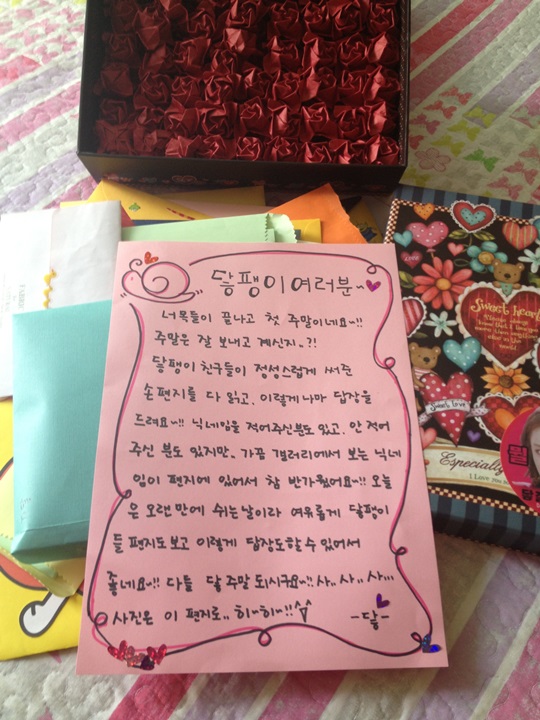 달팽이 여러분~
너목들이 끝나고 첫 주말이네요~!!
주말은 잘 보내고 계신지..?!
달팽이 친구들이 정성스럽게 써준
손편지를 다 읽고, 이렇게나마 답장을
드려요~!! 닉네임을 적어주신분도 있고, 안 적어
주신 분도 있지만.. 가끔 갤러리에서 보는 닉네
임이 편지에 있어서 참 반가웠어요~!! 오늘
은 오랜만에 쉬는날이라 여유롭게 달팽이
들 편지도보고 이렇게 답장도할수 있어서
좋네요~!! 다들 달 주말 되시구요~!! 사.. 사.. 사...
사진은 이 편지로.. 히~히~!!
-달-
Sweet hearts
Sweets Love
Especially
I Love you